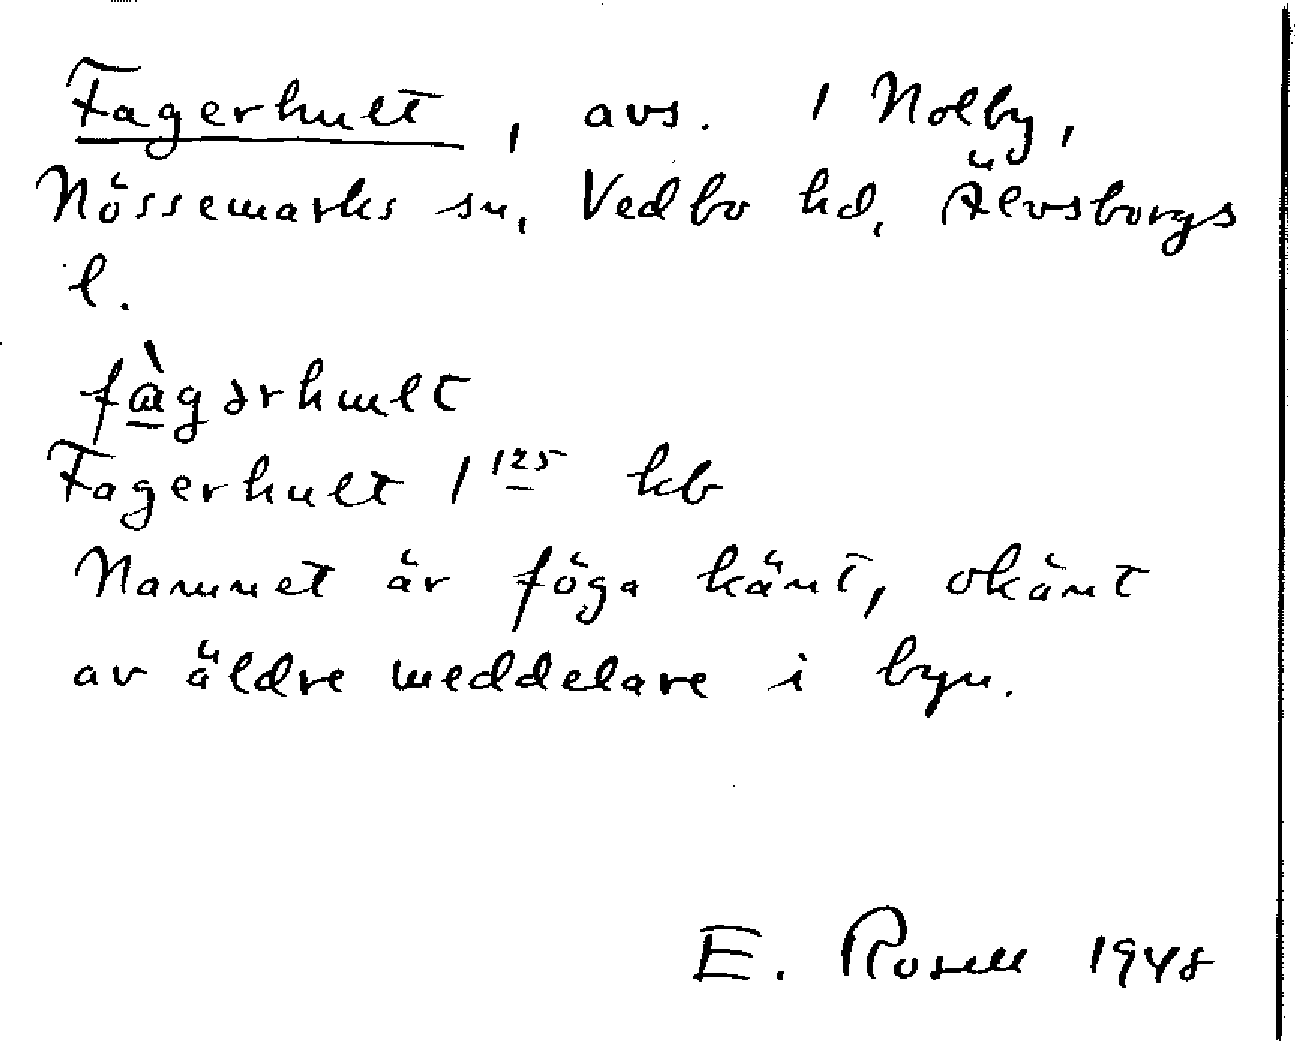 Fagerhult, avs. 1 Nolby,
Nössemarks sn, Vedbo hd, Älvsborgs
l.
fàgərhult
Fagerhult 1 125 kb
Namnet är föga känt, okänt
av äldre meddelare i byn.
E. Rosell 1948